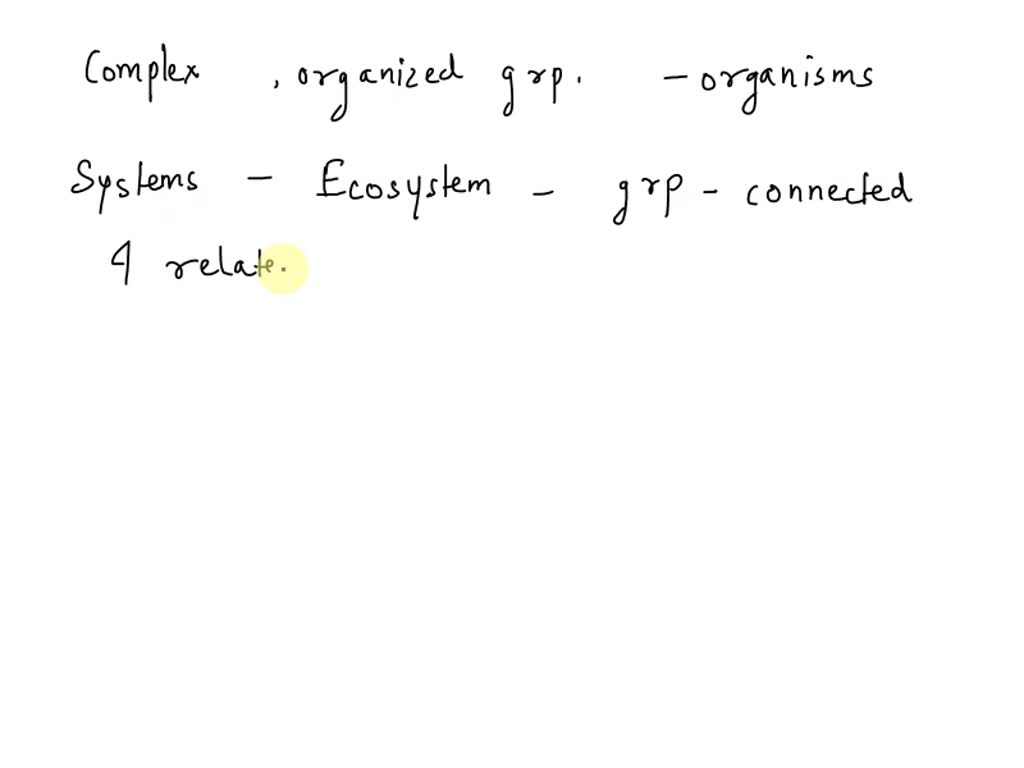 Complex , organized grp. - organisms
Systems - Ecosystem - grp - connected
& relate.